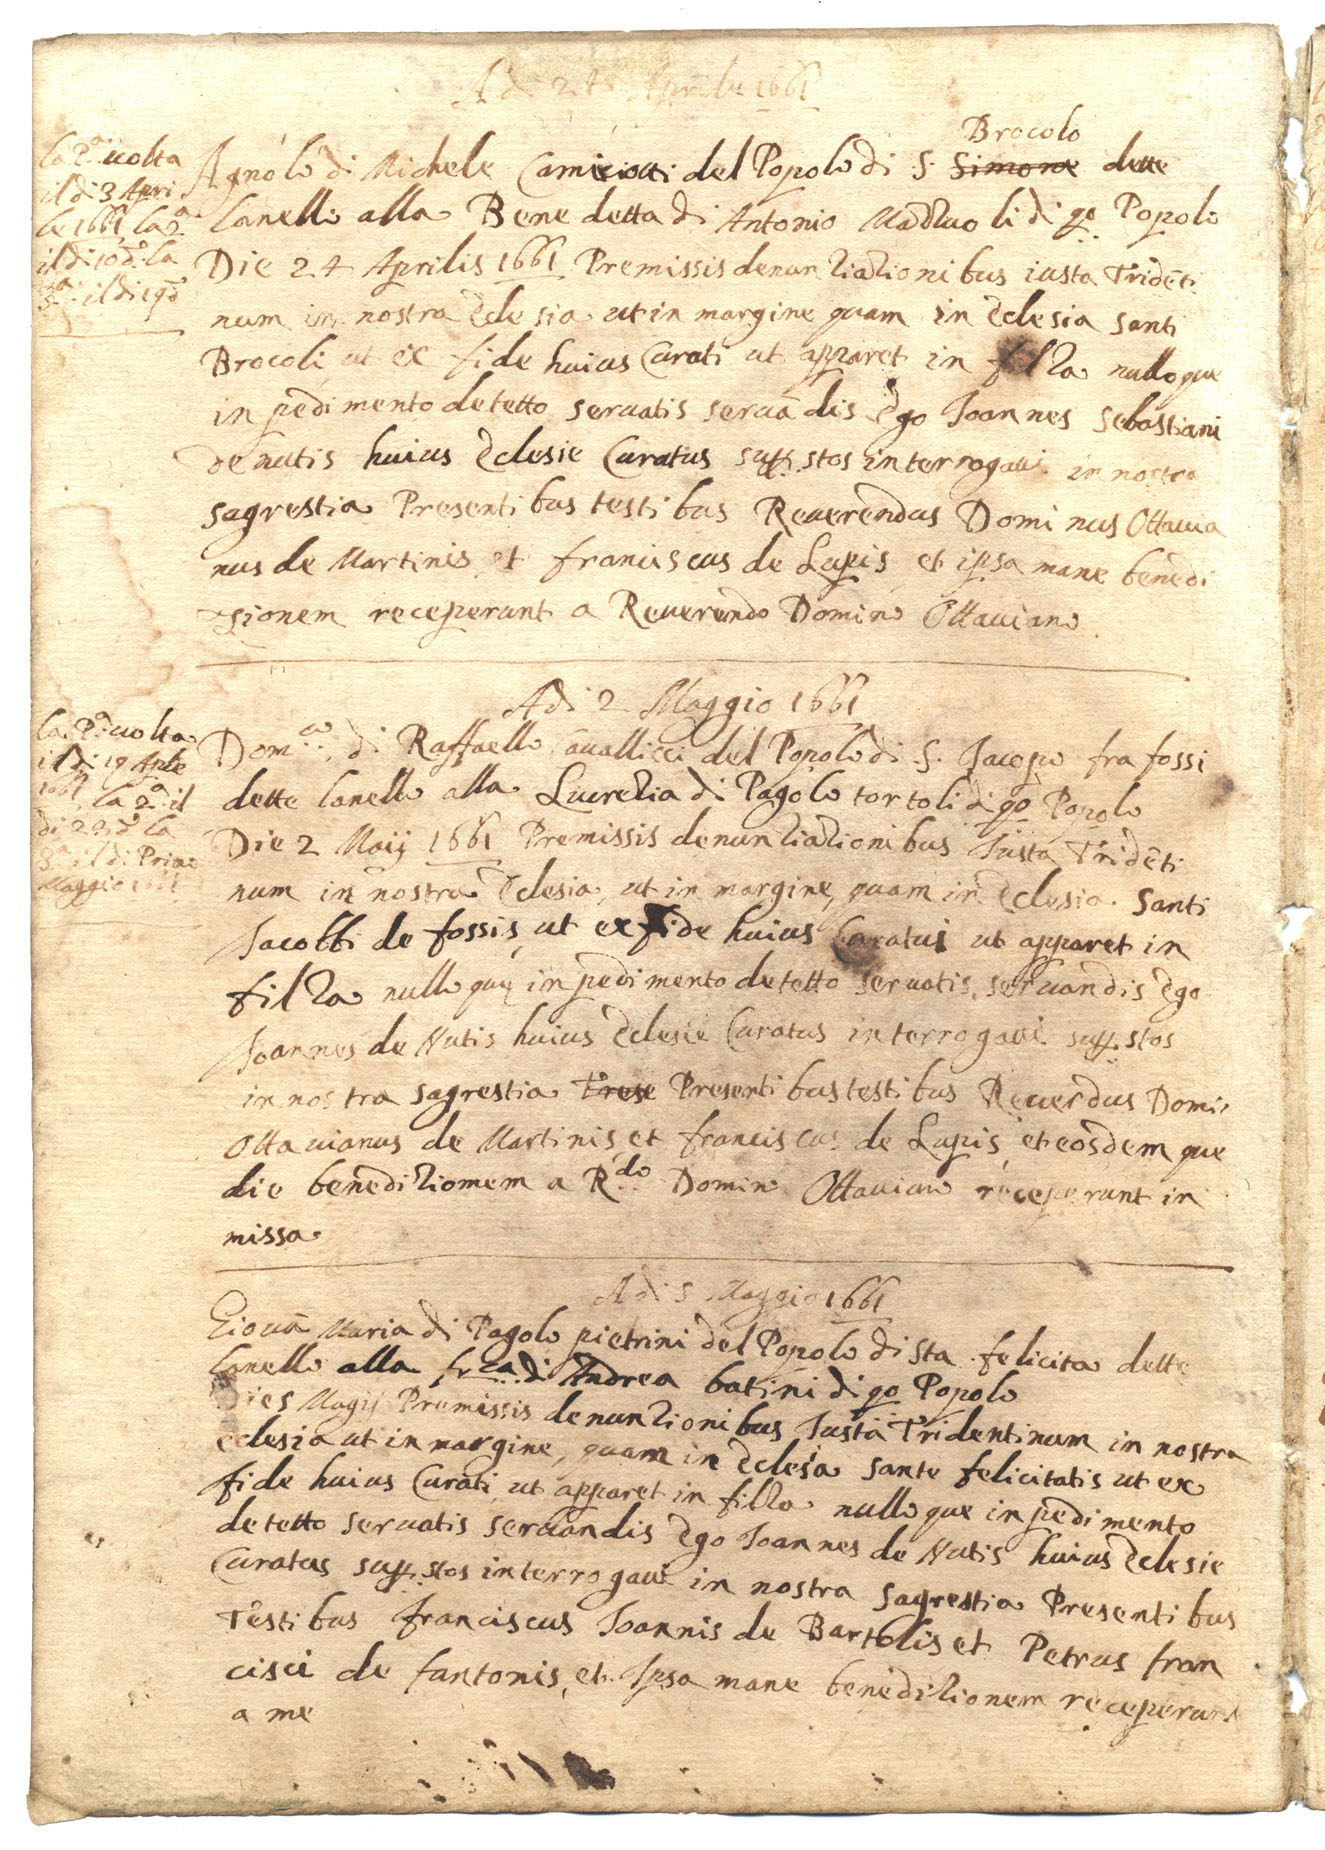 Adi 24 Aprile 1661
la p.a uolta
il di 3 Apri
le 1661 la 2.a
il di 10 d.o la
3.a il di 19 d.o
Brocolo
Agnolo di Michele Camiciotti del Popolo di S. Simone dette
lanello alla Benedetta di Antonio di qo Popolo
Die 24 Aprilis 1661 Premissis denunziazionibus iusta Tridēti
num in nostra Eclesia ut in margine quam in Eclesia santi
Brocoli ut ex fide huius Curati ut apparet in filza nulloque
inpedimento detetto seruatis seruādis Ego Joannes Sebastiani
de nutis huius Eclesie Curatus supp.stos interrogaui in nostra
sagrestia Presentibus testibus Reuerendus Dominus Ottauia
nus de Martinis et franciscus de Lupis et ipsa mane benedi
zionem receperunt a Reuerendo Domino Ottauiano
Adi 2 Maggio 1661
la p.a uolta
il di 19 Aple
1661 la 2.a il
di 23 d.o la
3.a il di Primo
Maggio 1661
Dom.co di Raffaello Cauallicci del Popolo di S. Jacopo fra fossi
dette lanello alla Lucrezia di Pagolo tortoli di qo Popolo
Die 2 Maij 1661 Premissis denunziazionibus Justa Tridēti
num in nostra Eclesia, ut in margine, quam in Eclesia Santi
Jacobbi de fossis, ut ex fide huius Curatus ut apparet in
filza nulloque inpedimento detetto seruatis, seruandis Ego
Joannes de Nutis huius Eclesie Curatus interrogaui supp.stos
in nostra sagrestia Trese Presentibus testibus Reuerdus Domi
Ottauianus de Martinis, et franciscus de Lupis, et eosdemque
die benedizionem a R.do Domino Ottauiano receperunt in
missa
Adi 5 Maggio 1661
Giouā Maria di Pagolo pietrini del Popolo di Sta felicita dette
lanello alla fr.ca di Andrea batini di qo Popolo
Die 5 Magij Premissis denunzionibus Justa Tridentinum in nostra
eclesia ut in margine, quam in Eclesia sante felicitatis ut ex
fide huius Curati, ut apparet in filza nulloque inpedimento
detetto seruatis seruandis Ego Joannes de Nutis huius Eclesie
Curatus supp.stos interrogaui in nostra sagrestia Presentibus
Testibus franciscus Joannis de Bartolis et Petrus fran
cisci de fantonis, et Ipsa mane benedizionem receperunt
a me